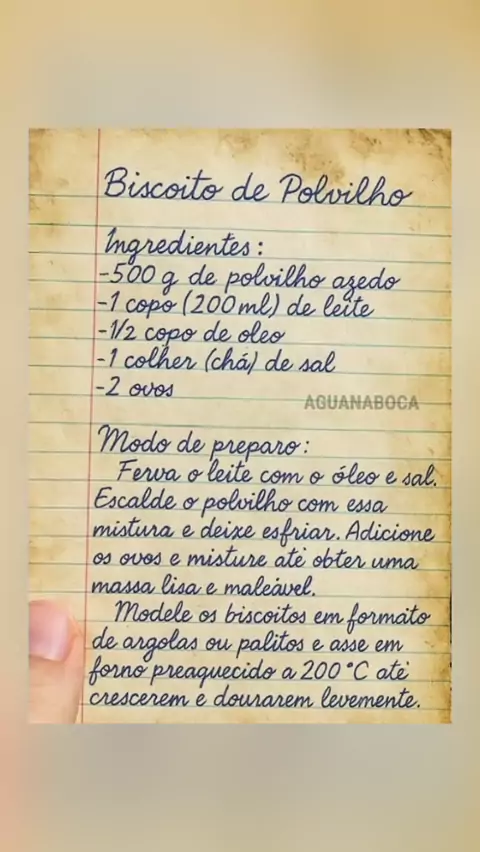 Biscoito de Polvilho
Ingredientes:
-500 g de polvilho azedo
-1 copo (200 ml) de leite
-1/2 copo de oleo
-1 colher (chá) de sal
-2 ovos
AGUANABOCA
Modo de preparo:
Ferva o leite com o óleo e sal.
Escalde o polvilho com essa
mistura e deixe esfriar. Adicione
os ovos e misture até obter uma
massa lisa e maleável.
Modele os biscoitos em formato
de argolas ou palitos e asse em
forno preaquecido a 200°C até
crescerem e dourarem levemente.